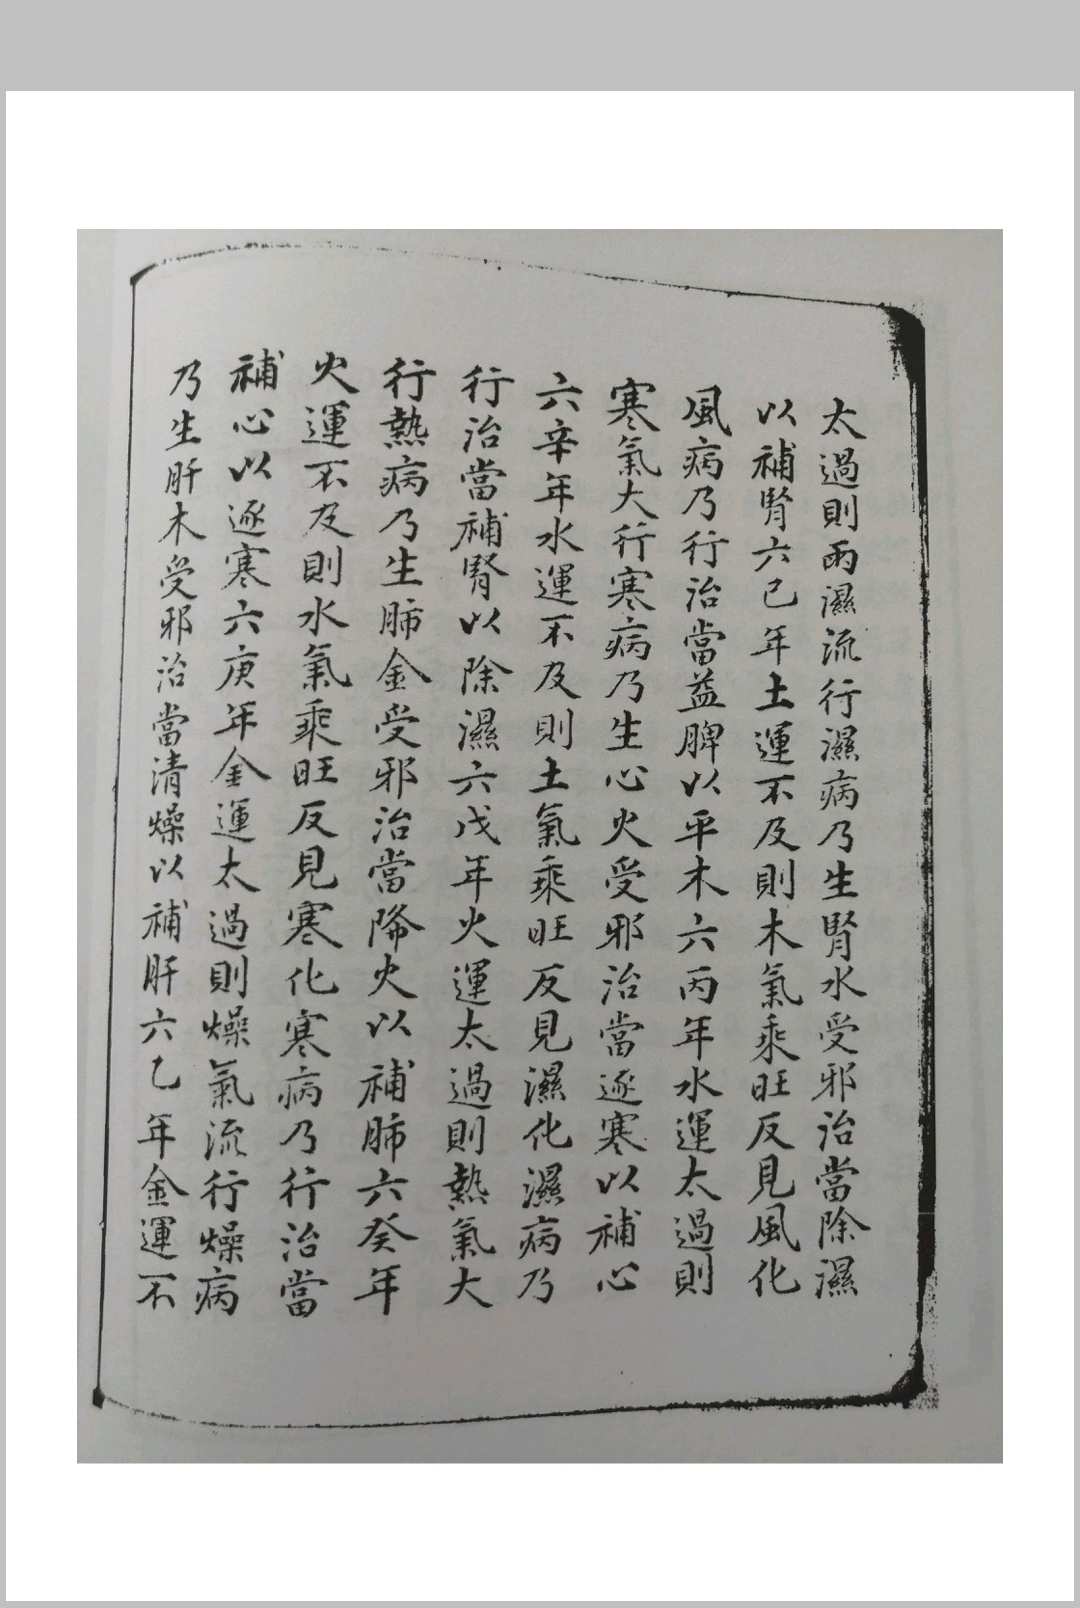 太過則雨濕流行濕病乃生腎水受邪治當除濕
以補腎六己年土運不及則木氣乘旺反見風化
風病乃行治當益脾以平木六丙年水運太過則
寒氣大行寒病乃生心火受邪治當逐寒以補心
六辛年水運不及則土氣乘旺反見濕化濕病乃
行治當補腎以除濕六戊年火運太過則熱氣大
行熱病乃生肺金受邪治當降火以補肺六癸年
火運不及則水氣乘旺反見寒化寒病乃行治當
補心以逐寒六庚年金運太過則燥氣流行燥病
乃生肝木受邪治當清燥以補肝六乙年金運不